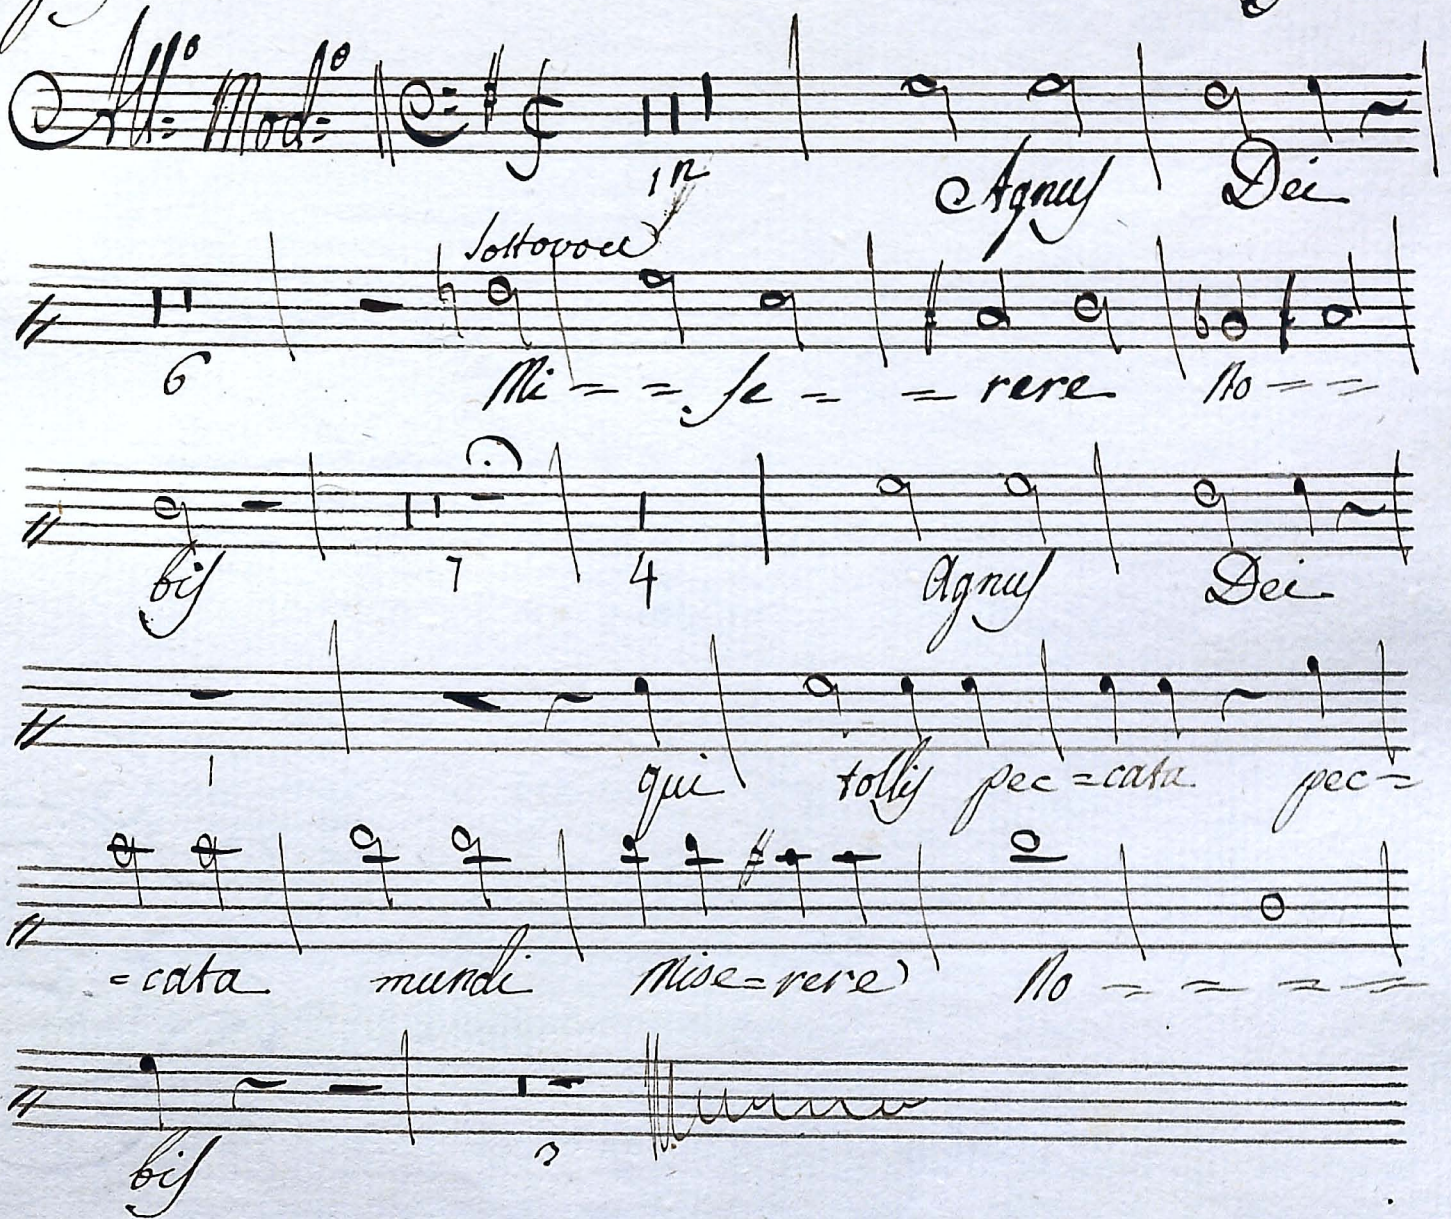 All:º Mod:º
12 Agnus Dei
Sottovoce
6 Mi - - se - - rere no - -
bis 7 4 Agnus Dei
1 qui tollis pec=cata pec=
=cata mundi Mise=rere No - - - -
bis 3